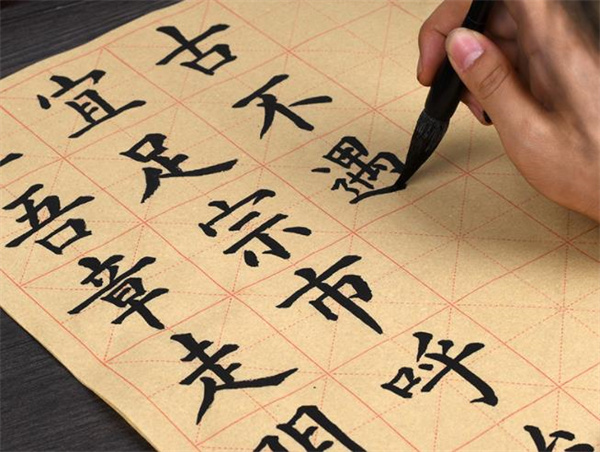 古不遇
宜足宗市呼
一吾章走